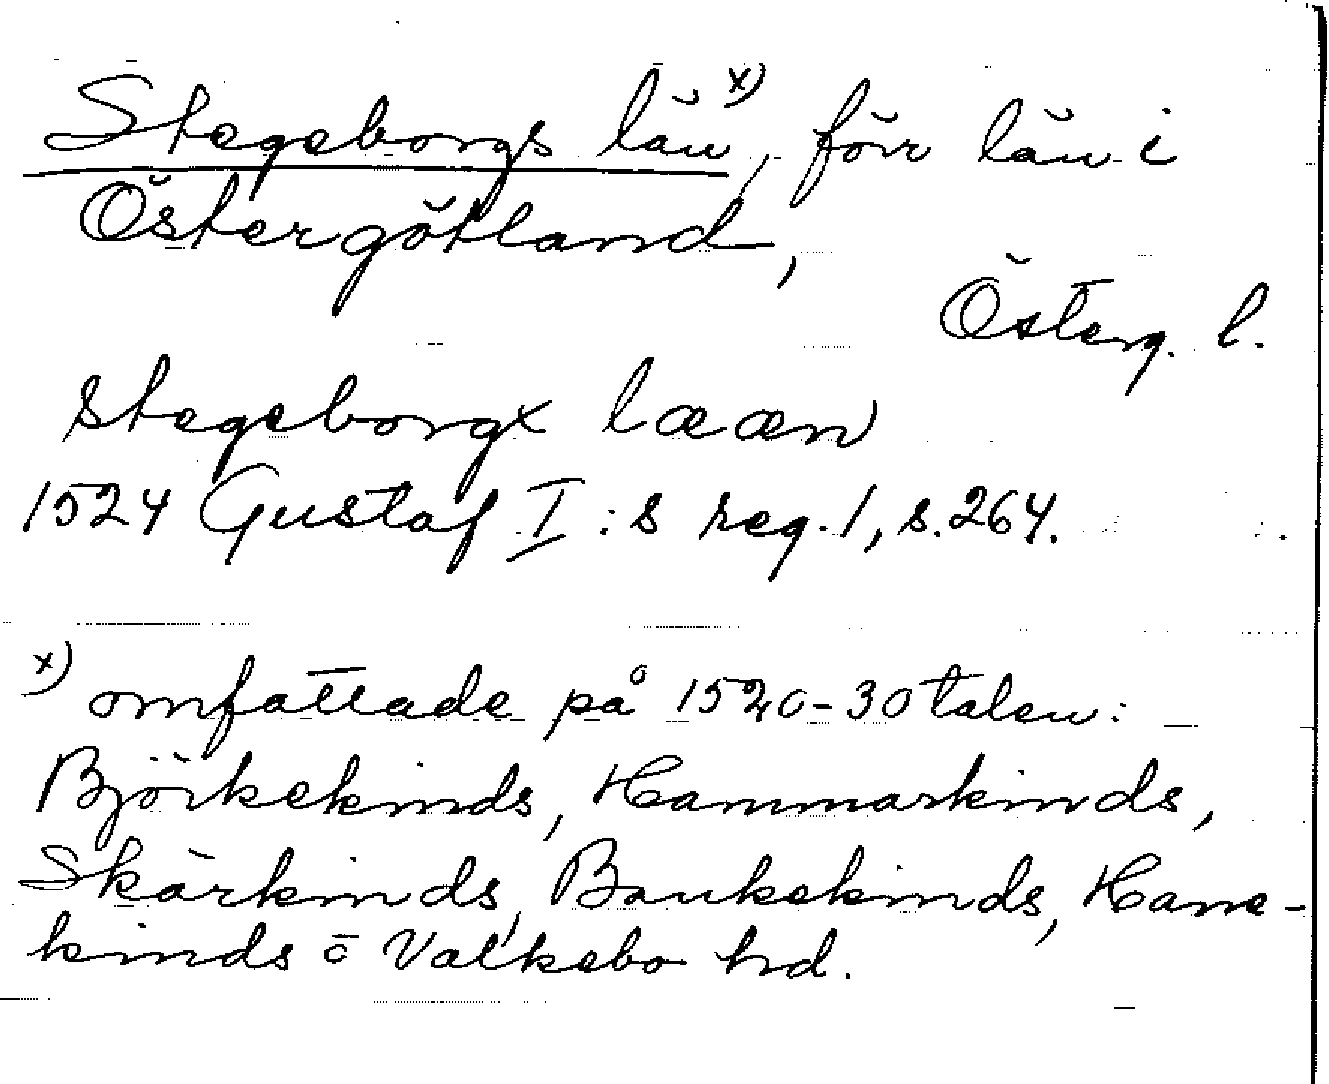 Stegeborgs län x), förr län i
Östergötland,
Österg. l.
Stegeborgx lææn
1524 Gustaf I:s reg. 1, s. 264.
x) omfattade på 1520-30 talen:
Björkekinds, Hammarkinds,
Skärkinds, Bankekinds, Hane-
kinds o Valkebo hd.